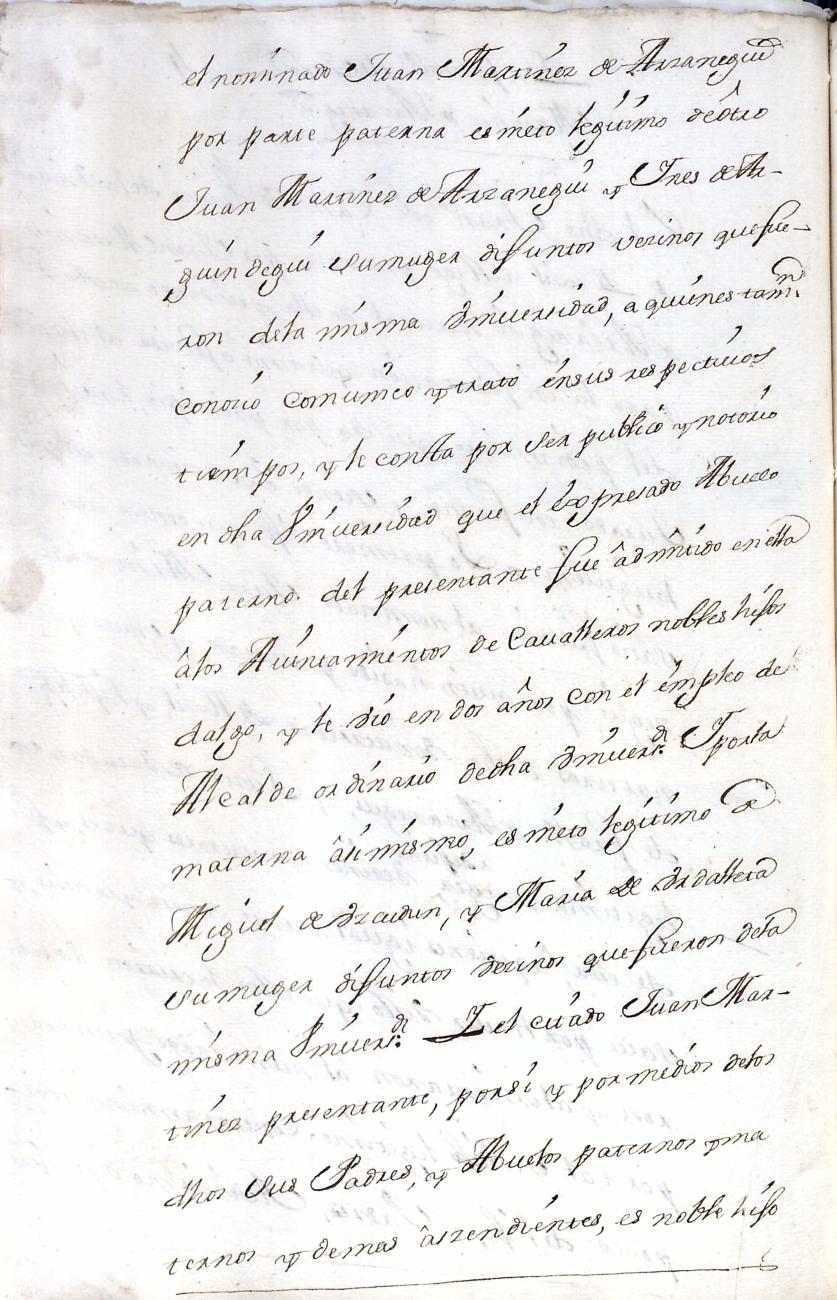 el nominado Juan Martinez de Arzanegui
por parte paterna es nieto legitimo de ôtro
Juan Martinez de Arzanegui y Ines de Ar-
guindegui su muger difuntos vezinos que fue-
ron de la misma Vniversidad, a quienes tamn.
conocio comunico y trato en sus respectivos
tiempos, y le consta por ser publico y notorio
en dha Vniversidad que el expresado Abuelo
paterno del presentante fue âdmitido en ella
â los Aiuntamientos de Cavalleros nobles hijos
dalgo, y le vio en dos años con el empleo de
Alcalde ordinario de dha Vniversd. Y por la
materna âsi mismo, es nieto legitimo de
Miguel de Vzcudun, y Maria de Vrdalleta
su muger difuntos vezinos que fueron de la
misma Vniversd. Y el citado Juan Mar-
tinez presentante, por si y por medios de los
dhos sus Padres, y Abuelos paternos y ma
ternos y demas âszendientes, es noble hijo